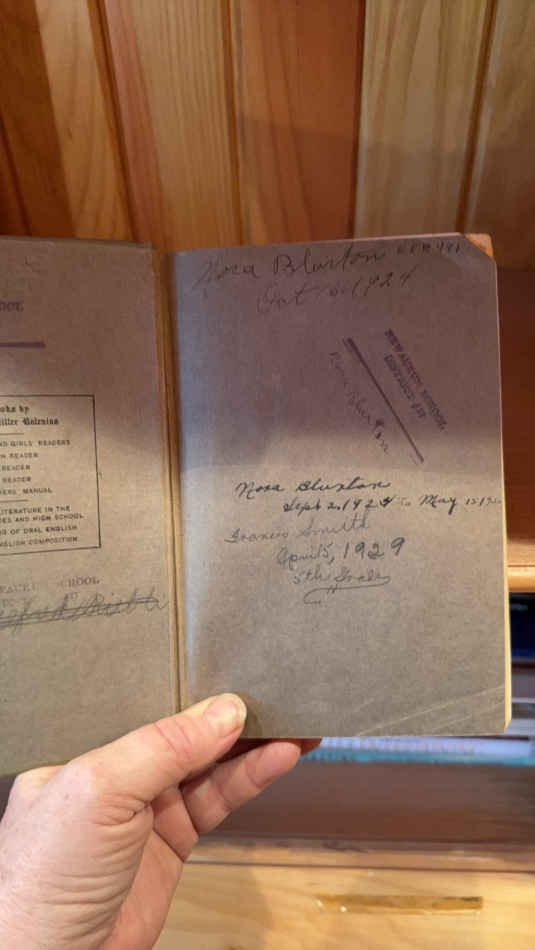 ooks by
iller Balenius
ND GIRLS' READERS
READER
READER
READER
MANUAL
LITERATURE IN THE
DES AND HIGH SCHOOL
NG OF ORAL ENGLISH
NGLISH COMPOSITION
SCHOOL
Nora Bluxton
Oct 1924
SCHOOL
DISTRICT
Nora Bluxton
Nora Bluxton
Sept 2, 1924 to May 15
Francis Smith
April 5, 1929
5th Grade